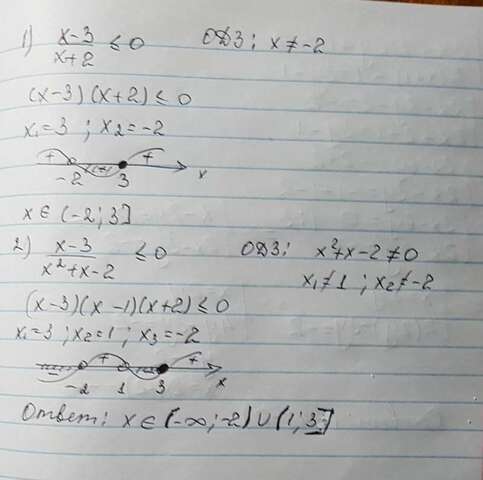 1) x-3/x+2 ≤ 0 ОДЗ: x ≠ -2
(x-3)(x+2) ≤ 0
x₁=3 ; x₂=-2
+ - +
-2 3 x
x ∈ (-2; 3]
2) x-3/x²+x-2 ≤ 0 ОДЗ: x²+x-2 ≠ 0
x₁ ≠ 1 ; x₂ ≠ -2
(x-3)(x-1)(x+2) ≤ 0
x₁=3 ; x₂=1 ; x₃=-2
- + - +
-2 1 3 x
Ответ: x ∈ (-∞; -2) ∪ (1; 3]